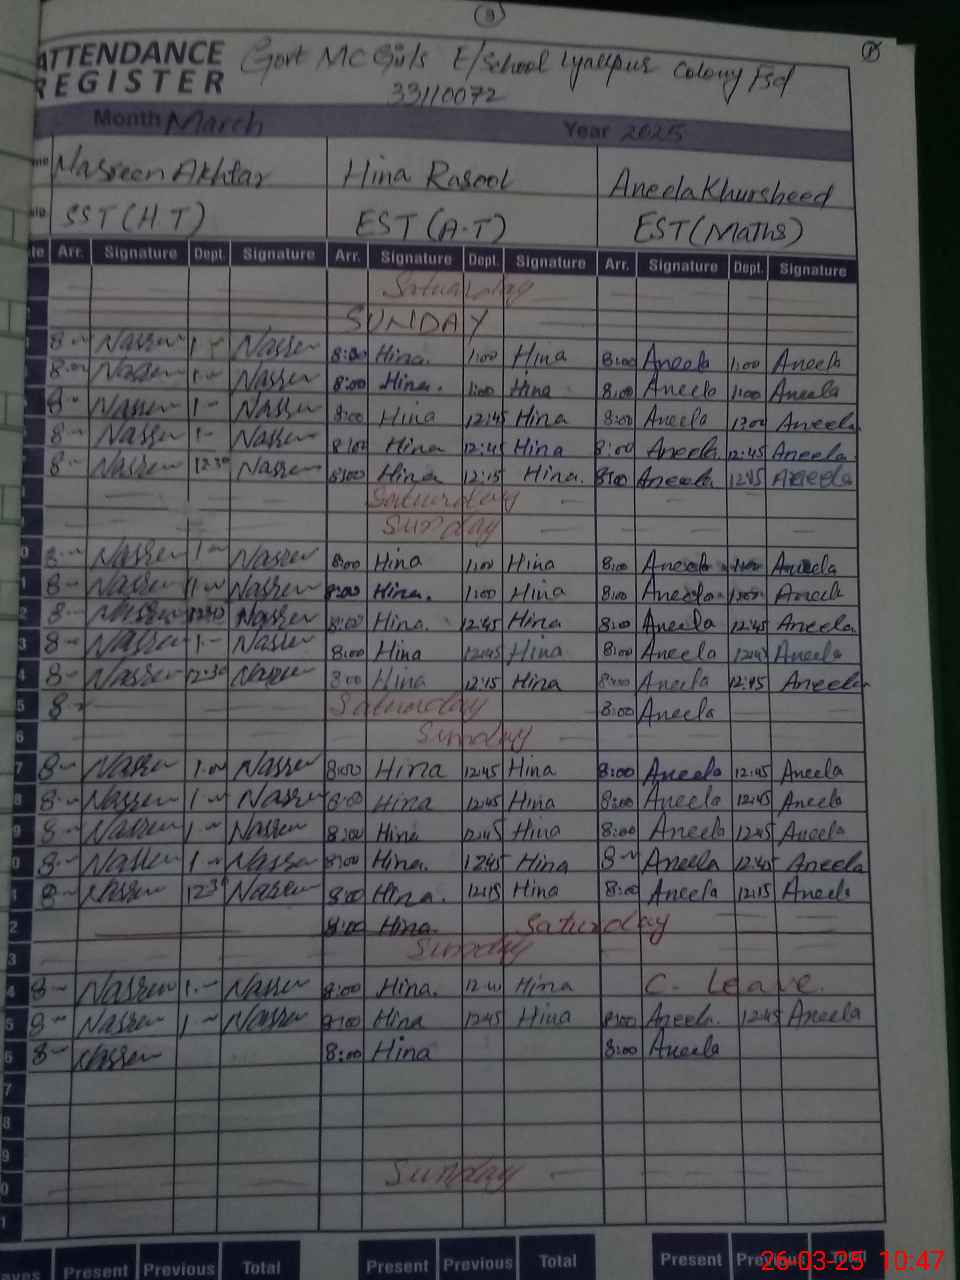 9
ATTENDANCE Govt MC Girls E/School Lyallpur Colony Fsd
REGISTER 33110072
Month March Year 2025
Nasreen Akhtar Hina Rasool Aneela Khursheed
SST (H T) EST (A.T) EST (Maths)
Arr. Signature Dept. Signature Arr. Signature Dept. Signature Arr. Signature Dept. Signature
Saturday
SUNDAY
8 Nasren 1 Nasren 8:00 Hina. 1:00 Hina 8:00 Aneela 1:00 Aneela
8:00 Nasren 1 Nasren 8:00 Hina. 1:00 Hina 8:00 Aneela 1:00 Aneela
8 Nasren 1 Nasren 8:00 Hina 12:45 Hina 8:00 Aneela Aneela
8 Nasren 1 Nasren 8:00 Hina 12:45 Hina 8:00 Aneela 12:45 Aneela.
8 Nasren 12:30 Nasren 8:00 Hina 12:15 Hina. 8:00 Aneela Aneela
Saturday
Sunday
0 8 Nasren 1 Nasren 8:00 Hina 1:00 Hina 8:00 Aneela Aneela
1 8 Nasren Nasren 8:00 Hina. 1:00 Hina 8:00 Aneela. Aneela
2 8 Nasren Nasren 8:00 Hina. 12:45 Hina 8:00 Aneela 12:45 Aneela
3 8 Nasren 1 Nasren 8:00 Hina 12:45 Hina 8:00 Aneela Aneela
4 8 Nasren 12:30 Nasren 8:00 Hina 12:15 Hina Aneela 12:45 Aneela
5 8 Saturday 8:00 Aneela
6 Sunday
7 8 Nasren 1:00 Nasren 8:00 Hina 12:45 Hina 8:00 Aneela 12:45 Aneela
8 8 Nasren 1 Nasren 8:00 Hina 12:45 Hina 8:00 Aneela 12:45 Aneela
9 8 Nasren 1 Nasren 8:00 Hina 12:45 Hina 8:00 Aneela 12:45 Aneela
0 8 Nasren 1 Nasren 8:00 Hina. 12:45 Hina 8 Aneela 12:45 Aneela
1 8 Nasren 12:30 Nasren 8:00 Hina. 12:15 Hina 8:00 Aneela 12:15 Aneela
2 8:00 Hina. Saturday
3 Sunday
4 8 Nasren 1 Nasren 8:00 Hina. Hina C. Leave.
5 8 Nasren 1 Nasren 8:00 Hina 12:45 Hina 8:00 Aneela. 12:45 Aneela
6 8 Nasren 8:00 Hina 8:00 Aneela
7
8
9
0 Sunday
1
Present Previous Total Present Previous Total Present Previous Total
26-03-25 10:47